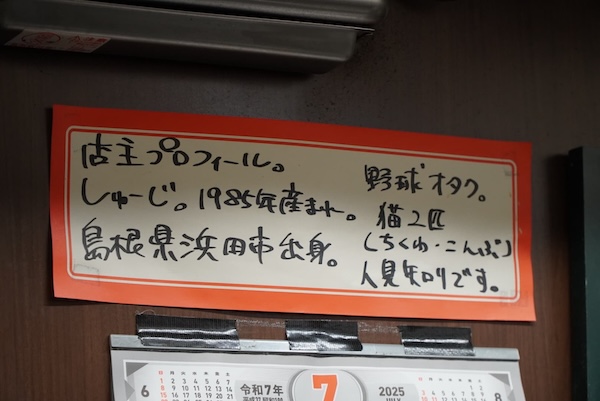 店主プロフィール。
しゅーじ。1985年産まれ。
島根県浜田市出身。
野球オタク。
猫2匹
(ちくわ・こんぶ)
人見知りです。
6
令和7年
7
2025
JULY
8